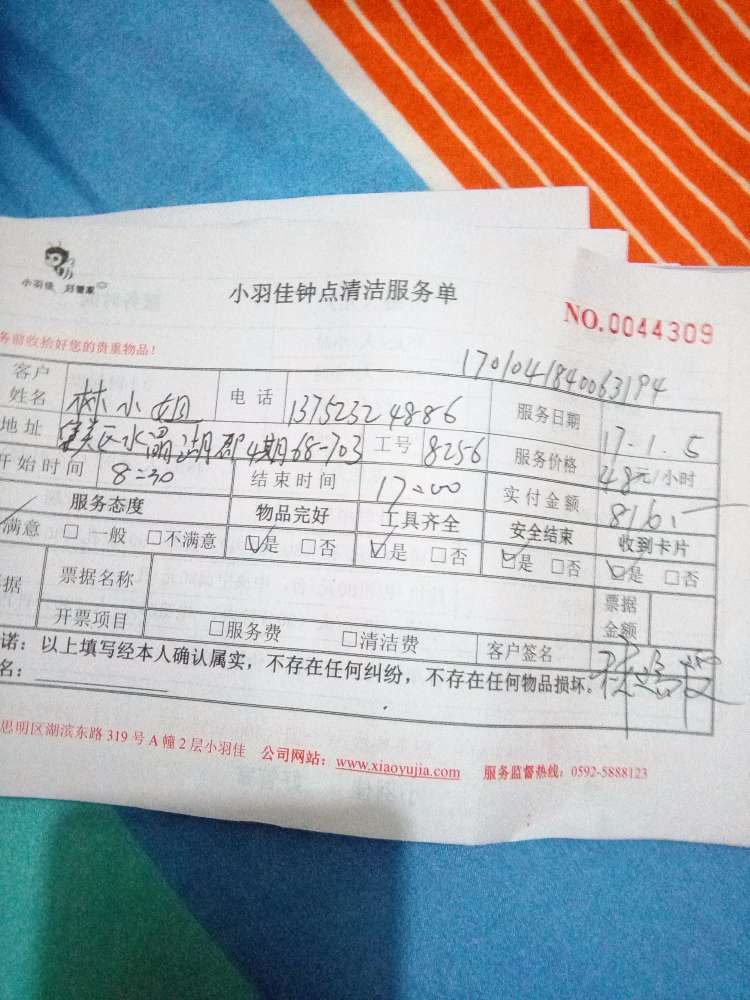 小羽佳 好管家
小羽佳钟点清洁服务单
NO.0044309
务前收拾好您的贵重物品!
170104184006 3194
客户姓名 林小姐 电话 13752324886 服务日期 17.1.5
地址 集美区水晶湖郡4期68-703 工号 8256 服务价格 48元/小时
开始时间 8:30 结束时间 17:00 实付金额 816.
服务态度 物品完好 工具齐全 安全结束 收到卡片
满意 □ 一般 □不满意 ☑是 □否 ☑是 □否 ☑是 □否 ☑是 □否
据 票据名称 票据金额
开票项目 □服务费 □清洁费 客户签名
诺:以上填写经本人确认属实,不存在任何纠纷,不存在任何物品损坏。
名:
思明区湖滨东路 319 号 A 幢 2 层小羽佳 公司网站:www.xiaoyujia.com 服务监督热线:0592-5888123